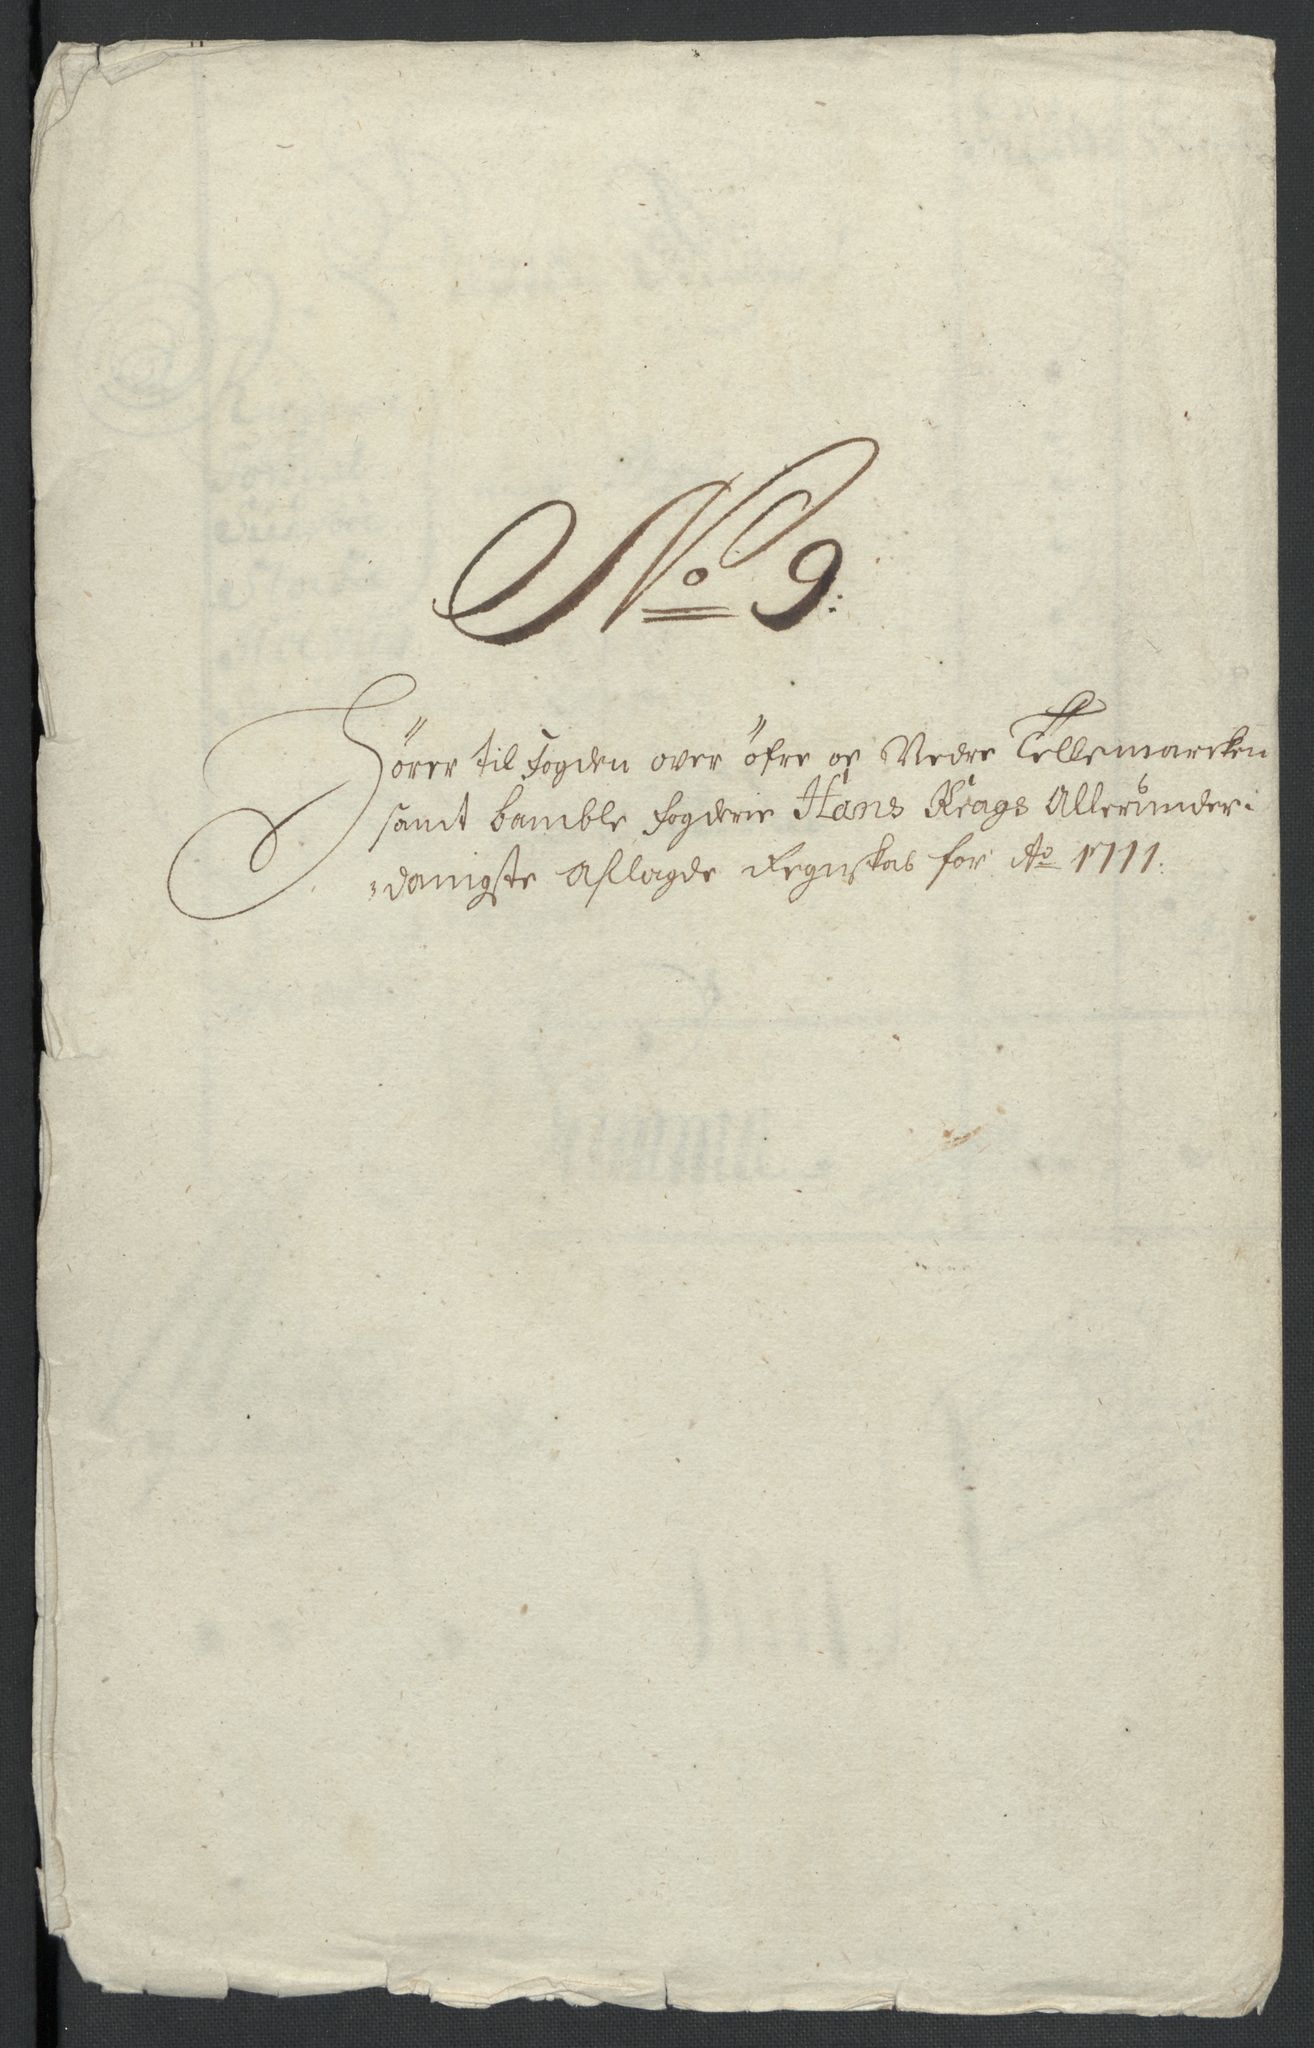 No 9:
Hörer til Fogden over öfre og Nedre Tellemarcken
samt bamble fogderie Hans Krags Allerunder-
danigste aflagde Regnskab for Ao 1711.